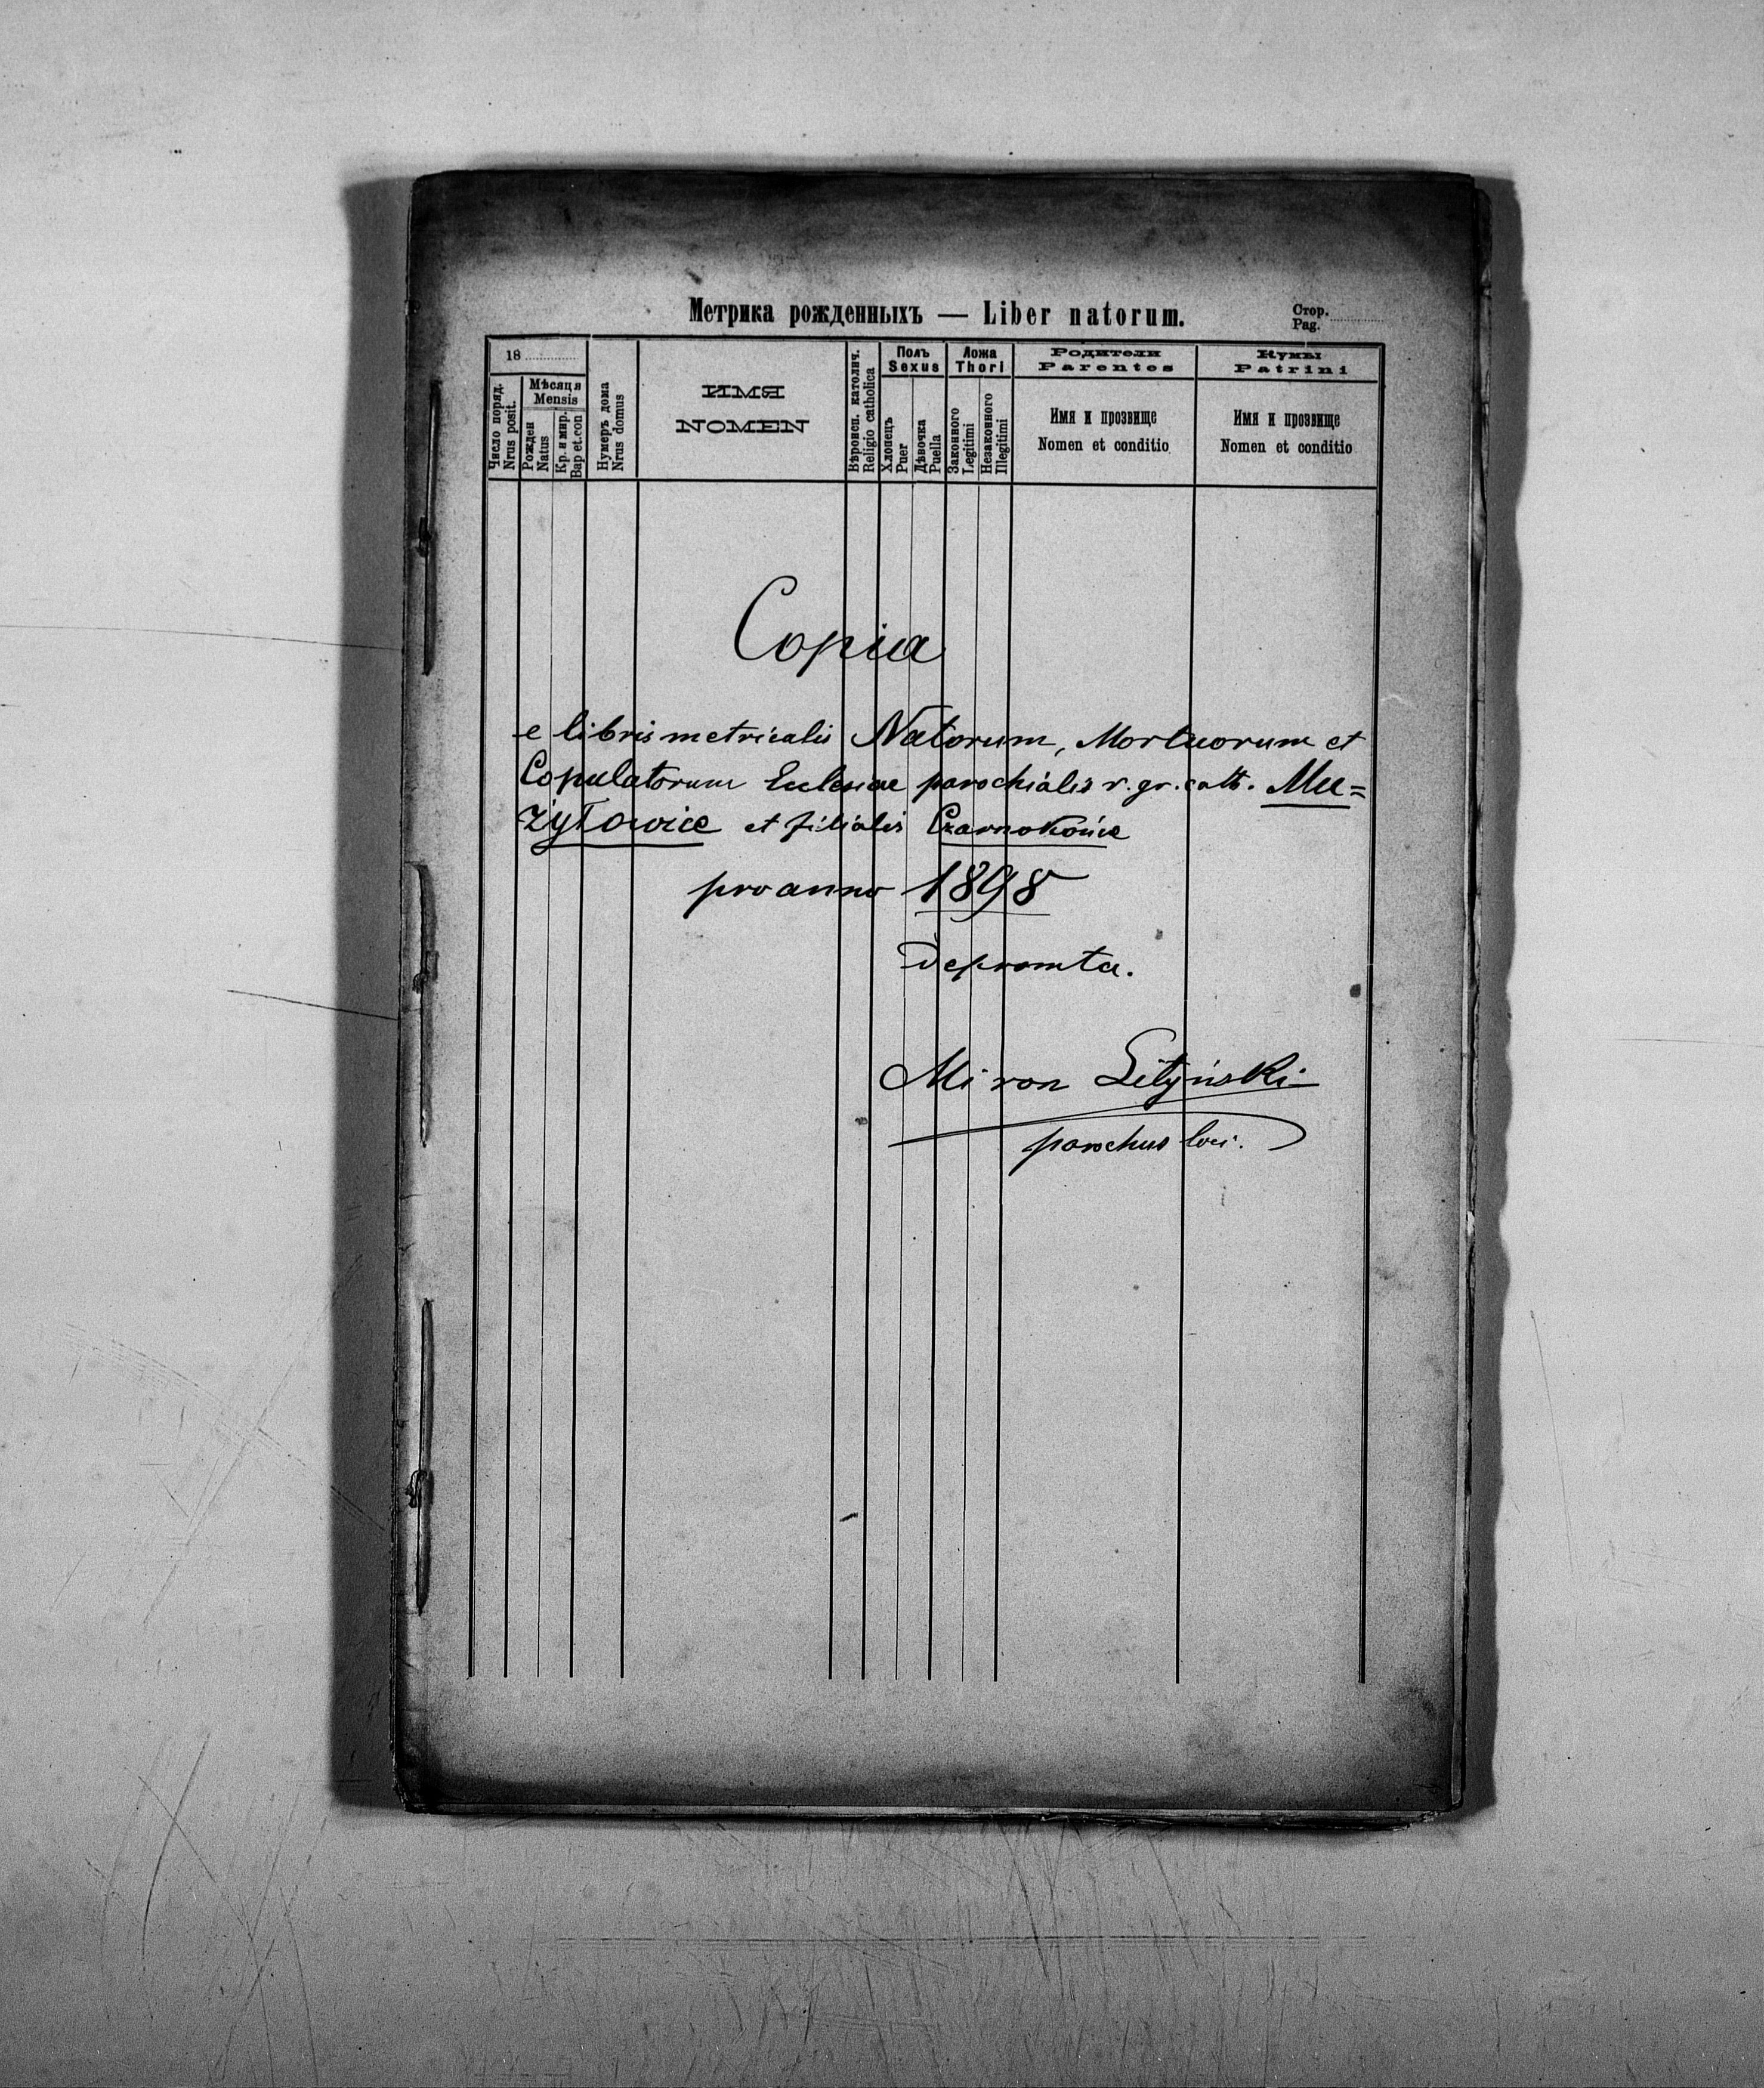 Метрика рожденныхъ — Liber natorum.
Стор.
Pag.
18
Число поряд.
Nrus posit.
Мѣсяця
Mensis
Рожден
Natus
Кр. и мир.
Bap et.con
Нумеръ дома
Nrus domus
ИМЯ
NOMEN
Вѣроисп. католич.
Religio catholica
Полъ
Sexus
Хлопецъ
Puer
Дѣвочка
Puella
Ложа
Thori
Законного
Legitimi
Незаконного
Illegitimi
Родители
Parentes
Имя и прозвище
Nomen et conditio
Кумы
Patrini
Имя и прозвище
Nomen et conditio
Copia
e libris metricalis Natorum, Mortuorum et
Copulatorum Ecclesiae parochialis r. gr. cath. Mu=
żyłowice et filialis Czarnokońce
pro anno 1898
depromta.
Miron Lityński
parochus loci.